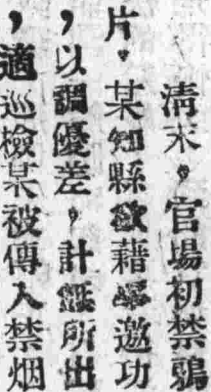 清末，官場初禁鴉
片。某知縣欲藉邀功
，以調優差，計無所出
，適巡檢某被傳入禁烟